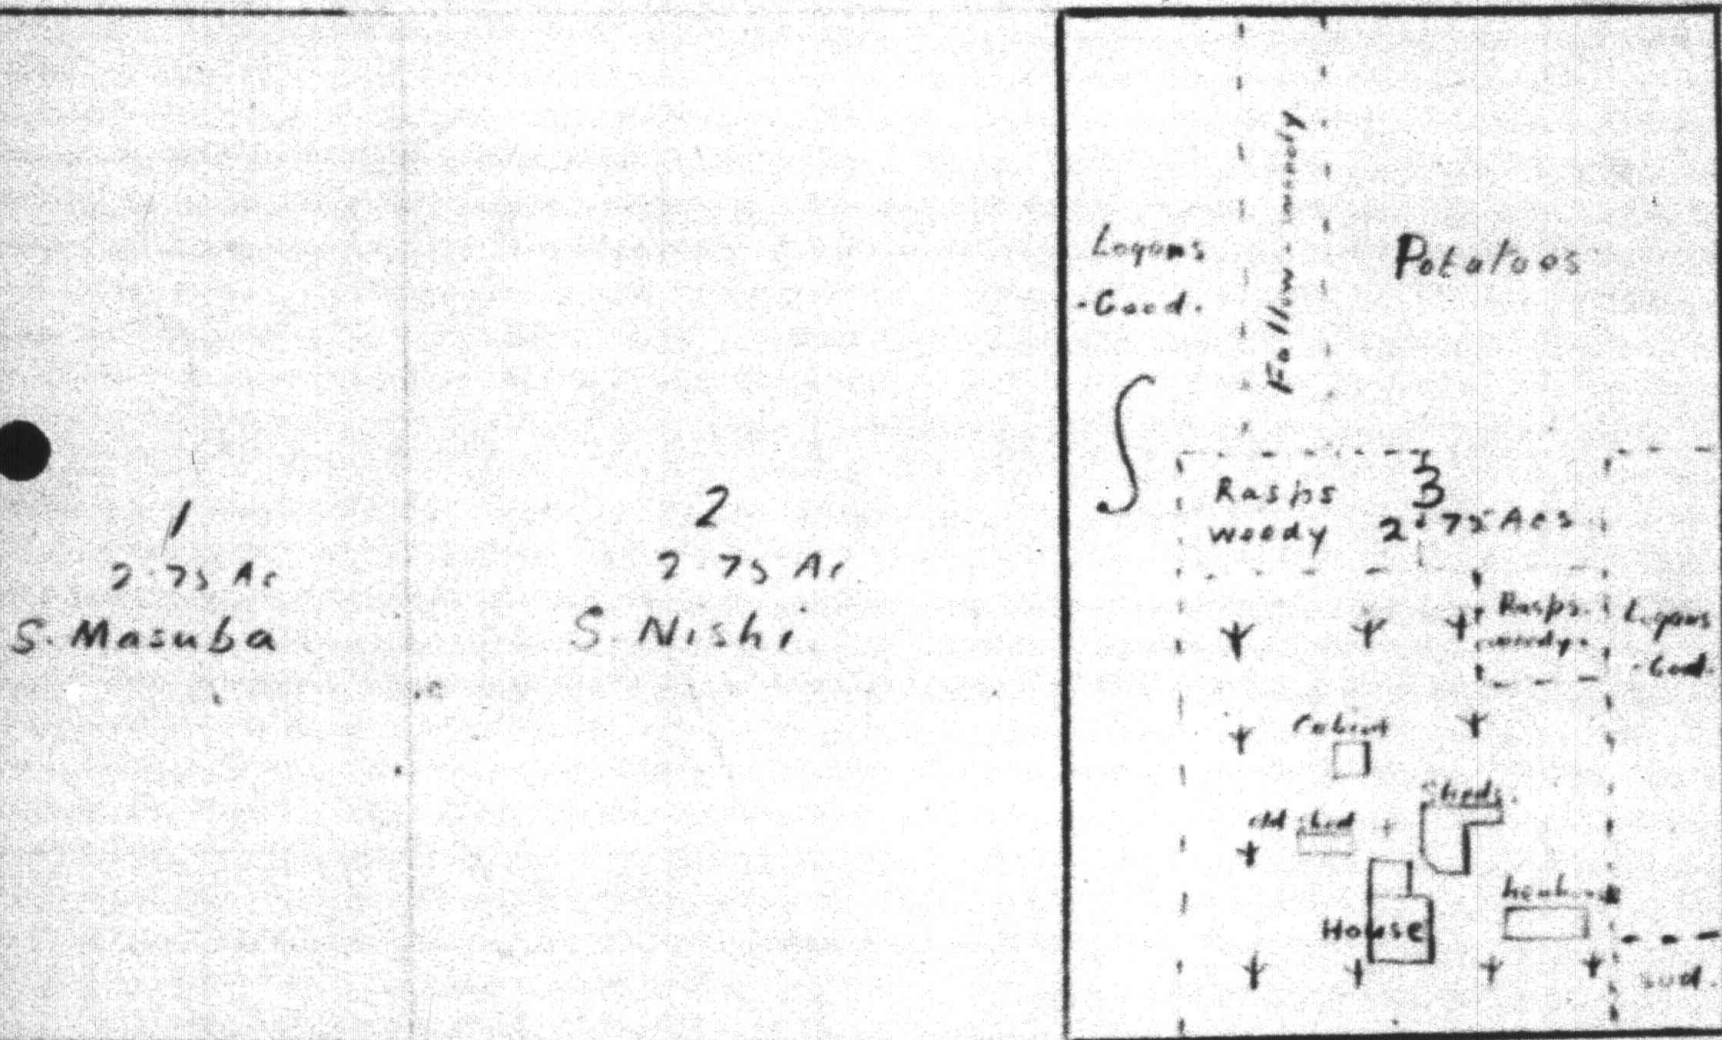 1
2.75 Ac
S. Masuba
2
2.75 Ac
S. Nishi
Logans
-Good.
Fallow -
Potatoes
Rasps
weedy
3
2.75 Acs
Rasps.
weedy.
Logans
-Good.
Cabin
Sheds.
old shed
House
sod.